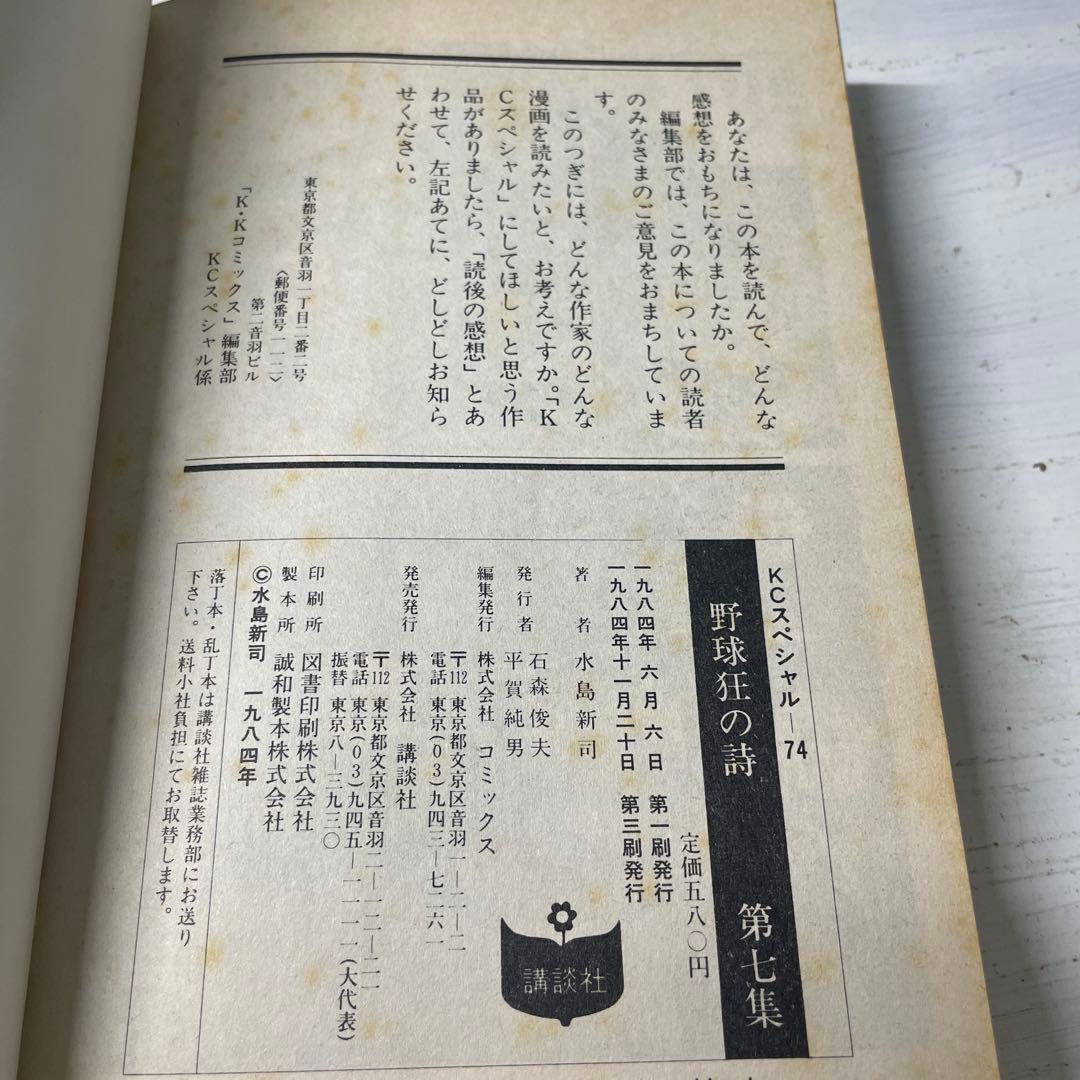 あなたは、この本を読んで、どんな
感想をおもちになりましたか。
編集部では、この本についての読者
のみなさまのご意見をおまちしていま
す。
このつぎには、どんな作家のどんな
漫画を読みたいと、お考えですか。「K
Cスペシャル」にしてほしいと思う作
品がありましたら、「読後の感想」とあ
わせて、左記あてに、どしどしお知ら
せください。
東京都文京区音羽一丁目二番二号
〈郵便番号一一二〉
第二音羽ビル
「K・Kコミックス」編集部
KCスペシャル係
KCスペシャル—74
野球狂の詩 第七集
定価五八〇円
一九八四年 六月 六日 第一刷発行
一九八四年十一月二十日 第三刷発行
著者 水島新司
発行者 石森俊夫
平賀純男
編集発行 株式会社 コミックス
〒112 東京都文京区音羽一—二—二
電話 東京(03)九四三—七二六一
発売発行 株式会社 講談社
〒112 東京都文京区音羽二—一二—二一
電話 東京(03)九四五—一一一一(大代表)
振替 東京八—三九三〇
印刷所 図書印刷株式会社
製本所 誠和製本株式会社
©水島新司 一九八四年
落丁本・乱丁本は講談社雑誌業務部にお送り
下さい。送料小社負担にてお取替します。
講談社